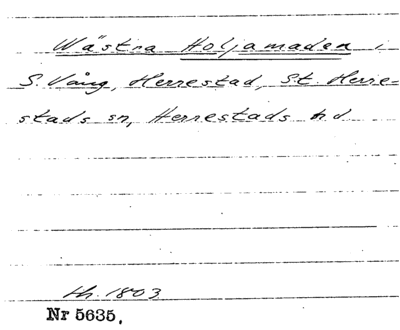 Wästra Holjamaden i
S. Vång, Herrestad, St. Herre-
stads sn, Herrestads hd
th. 1803
Nr 5635.